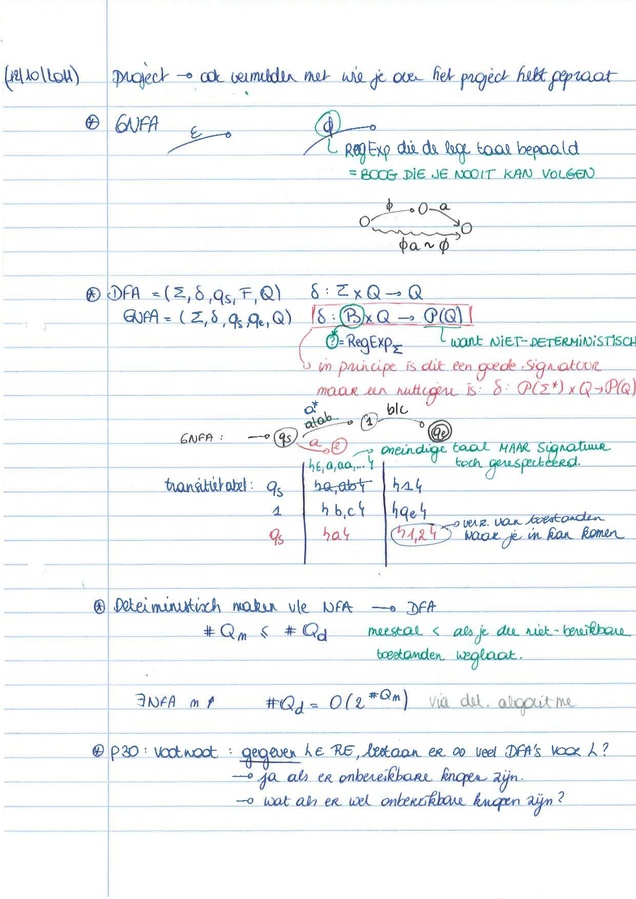 (12/10/2011) Project → ook vermelden met wie je over het project hebt gepraat
* GNFA ε ϕ
RegExp die de lege taal bepaald
= BOOG DIE JE NOOIT KAN VOLGEN
ϕ a
ϕa ~ ϕ
* DFA = (Σ, δ, qs, F, Q) δ : Σ x Q → Q
GNFA = (Σ, δ, qs, qe, Q) δ : B x Q → P(Q)
? = RegExp_Σ want NIET-DETERMINISTISCH
in principe is dit een goede signatuur
maar een nuttigere is : δ : P(Σ*) x Q → P(Q)
a*
a|ab b|c
GNFA : → qs 1 qe
a 2
oneindige taal MAAR signatuur
toch gerespecteerd.
{ε, a, aa, ...}
transitietabel : qs {a, ab} {1}
1 {b, c} {qe}
qs {a} {1, 2} verz. van toestanden
waar je in kan komen
* Deterministisch maken v/e NFA → DFA
# Qn ≤ # Qd meestal < als je de niet-bereikbare
toestanden weglaat.
∃ NFA n #Qd = O(2^#Qn) via det. algoritme
* P30 : voetnoot : gegeven L ∈ RE, bestaan er ∞ veel DFA's voor L ?
→ ja als er onbereikbare knopen zijn.
→ wat als er wel onbereikbare knopen zijn ?